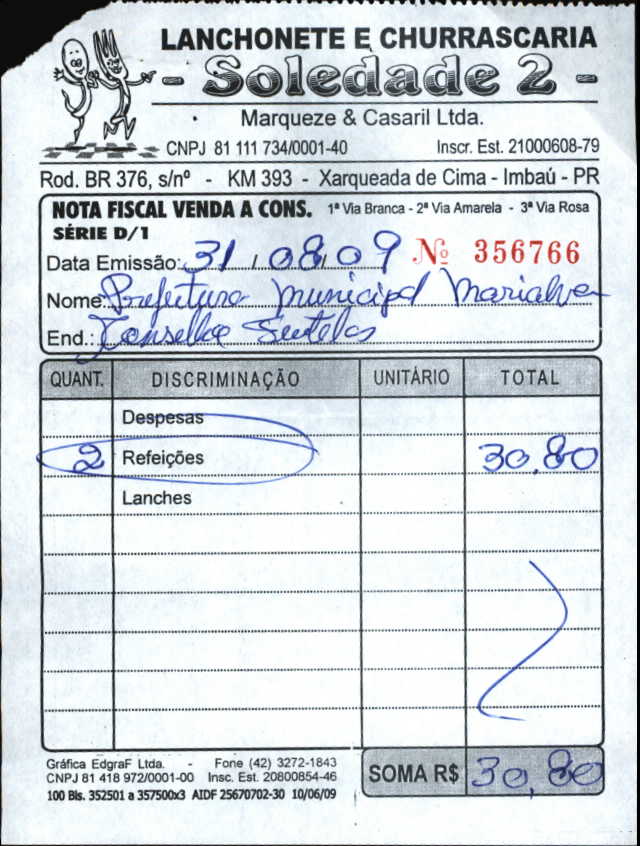 LANCHONETE E CHURRASCARIA
- Soledade 2 -
Marqueze & Casaril Ltda.
CNPJ 81 111 734/0001-40 Inscr. Est. 21000608-79
Rod. BR 376, s/nº - KM 393 - Xarqueada de Cima - Imbaú - PR
NOTA FISCAL VENDA A CONS. 1ª Via Branca - 2ª Via Amarela - 3ª Via Rosa
SÉRIE D/1
Data Emissão: 31 / 08 / 09 Nº 356766
Nome: Prefeitura Municipal Marialva
End.: Conselho Tutelar
QUANT. DISCRIMINAÇÃO UNITÁRIO TOTAL
Despesas
2 Refeições 30,80
Lanches
Gráfica EdgraF Ltda. - Fone (42) 3272-1843
CNPJ 81 418 972/0001-00 Insc. Est. 20800854-46
100 Bls. 352501 a 357500x3 AIDF 25670702-30 10/06/09
SOMA R$ 30,80